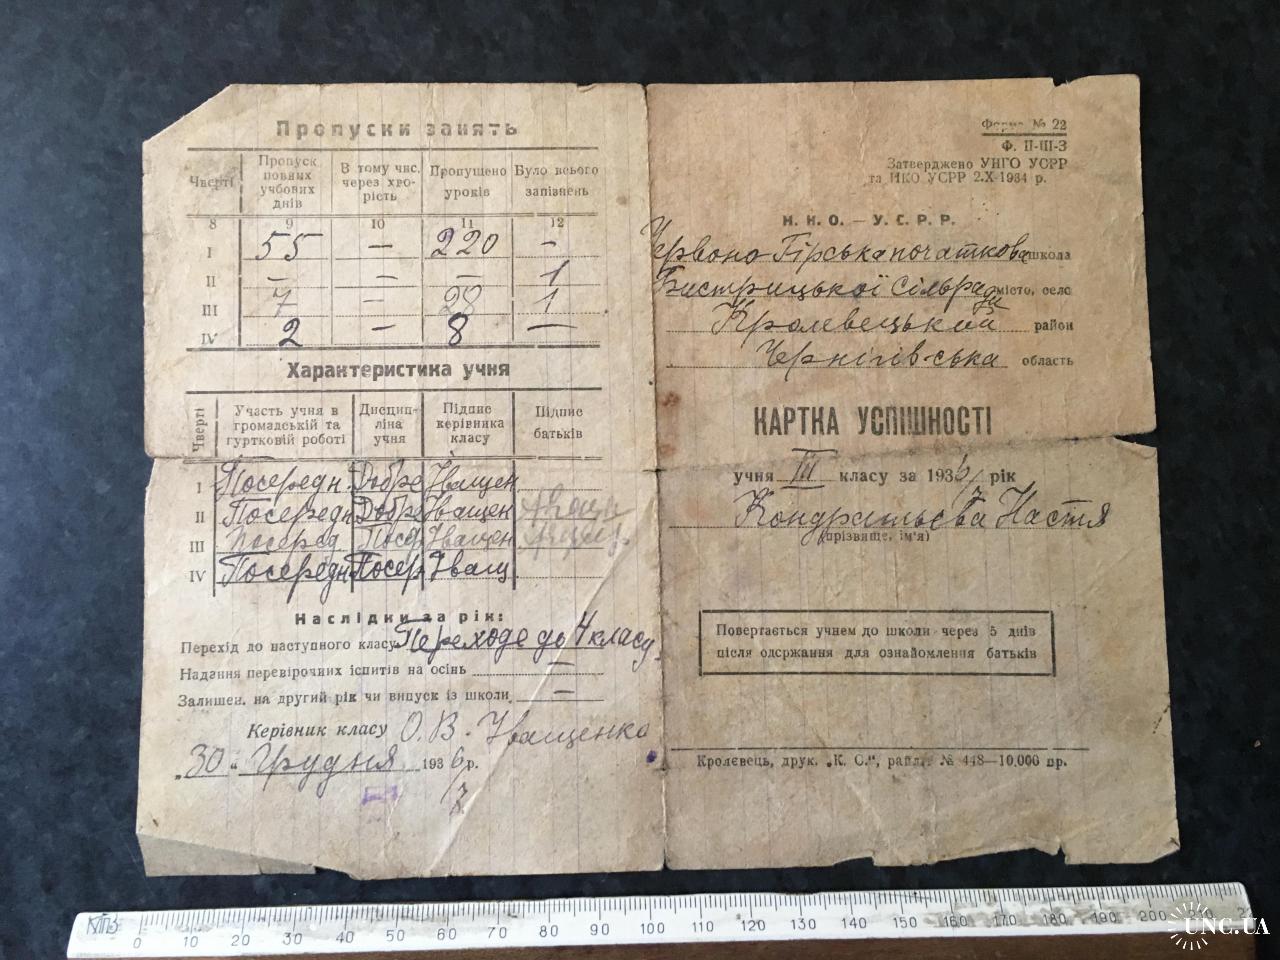 Пропуски занять
Чверті | Пропуск повних учбових днів | В тому чис. через хворість | Пропущено уроків | Було всього запізнень
8 | 9 | 10 | 11 | 12
I | 55 | — | 220 | —
II | — | — | — | 1
III | 7 | — | 28 | 1
IV | 2 | — | 8 | —
Характеристика учня
Чверті | Участь учня в громадській та гуртковій роботі | Дисципліна учня | Підпис керівника класу | Підпис батьків
I | Посередн. | Добре | Іващен
II | Посередн | Добре | Іващен
III | Посеред | Посер. | Іващен
IV | Посередн | Посер | Іващ
Наслідки за рік:
Перехід до наступного класу Переходе до 4 класу
Надання перевірочних іспитів на осінь —
Залишен. на другий рік чи випуск із школи —
Керівник класу О. В. Іващенко
„30“ Грудня 1936 р.
7
Форма № 22
Ф. II-III-З
Затверджено УНГО УСРР
та НКО УСРР 2.X-1934 р.
Н. К. О. — У. С. Р. Р.
Червоно Гірська початкова школа
Бистрицької Сільради місто, село
Кролевецький район
Чернігівська область
КАРТКА УСПІШНОСТІ
учня III класу за 1936/7 рік
Кондратьєва Настя
(прізвище, ім'я)
Повертається учнем до школи через 5 днів
після одержання для ознайомлення батьків
Кролевець, друк. „К. С.“, райл. № 448—10,000 пр.
0 10 20 30 40 50 60 70 80 90 100 110 120 130 140 150 160 170 180 190 200 210
UNC.UA